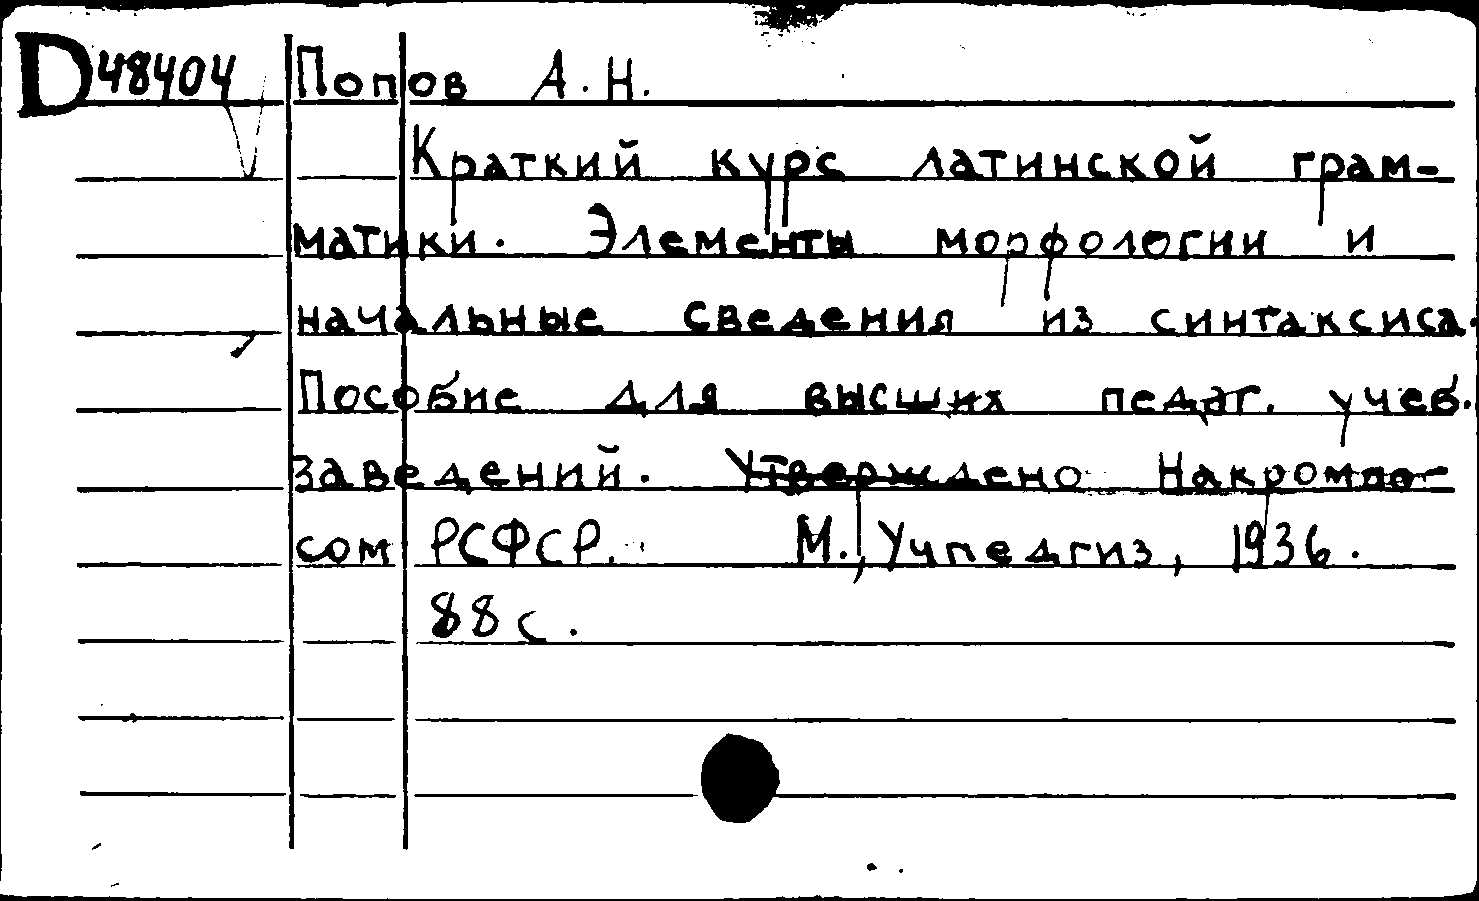 D48404 Попов А.Н.
Краткий курс латинской грам-
матики. Элементы морфологии и
начальные сведения из синтаксиса.
Пособие для высших педаг. учеб.
заведений. Утверждено Накромпо-
сом РСФСР. М., Учпедгиз, 1936.
88 с.